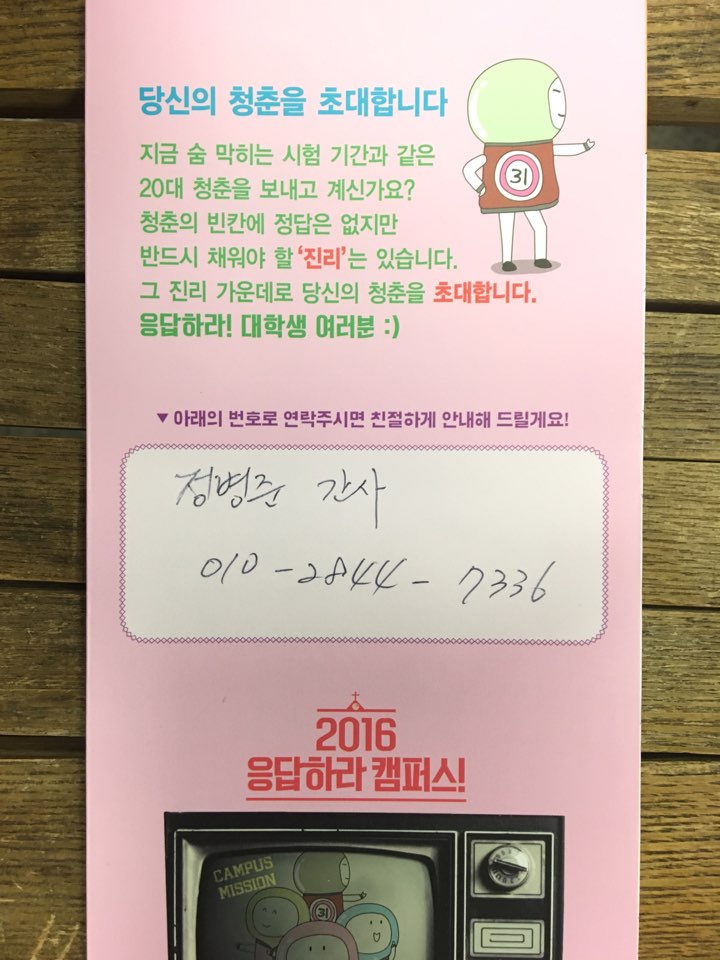 당신의 청춘을 초대합니다
지금 숨 막히는 시험 기간과 같은
20대 청춘을 보내고 계신가요?
청춘의 빈칸에 정답은 없지만
반드시 채워야 할 '진리'는 있습니다.
그 진리 가운데로 당신의 청춘을 초대합니다.
응답하라! 대학생 여러분 :)
31
▼ 아래의 번호로 연락주시면 친절하게 안내해 드릴게요!
정병준 간사
010-2844-7336
2016
응답하라 캠퍼스!
CAMPUS
MISSION
31